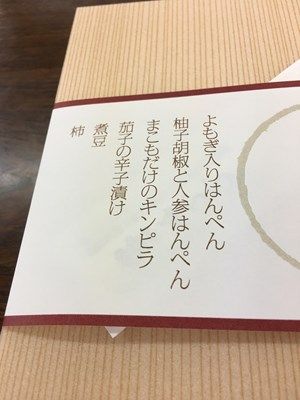 よもぎ入りはんぺん
柚子胡椒と人参はんぺん
まこもだけのキンピラ
茄子の辛子漬け
煮豆
柿